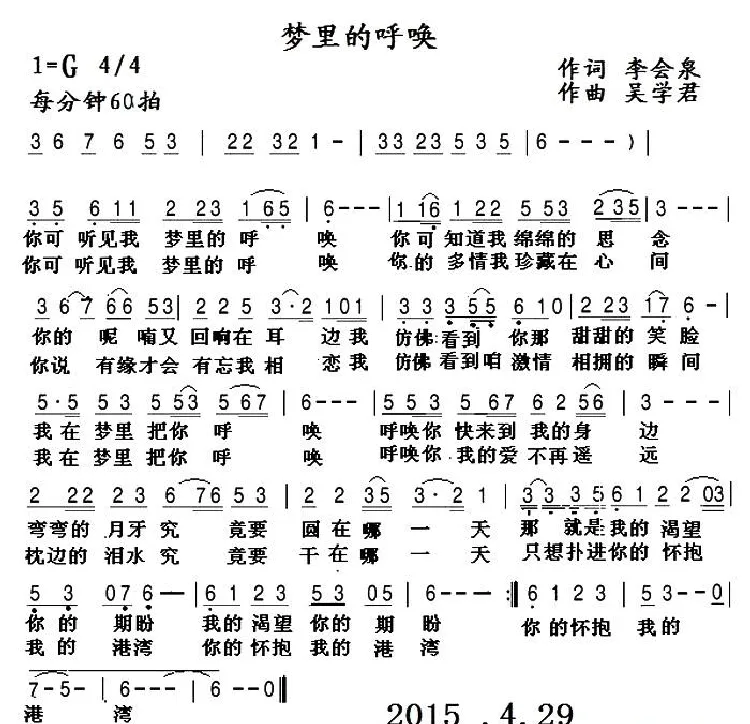 梦里的呼唤
1=G 4/4
作词 李会泉
每分钟60拍
作曲 吴学君
3 6 7 6 5 3 | 22 32 1 - | 33 23 5 3 5 | 6 - - - ) |
3 5 6 11 2 23 1 65 | 6 - - - | 1 16 1 22 5 53 235 | 3 - - - |
你可 听见我 梦里的呼 唤 你可 知道我 绵绵的 思 念
你可 听见我 梦里的呼 唤 你的 多情我 珍藏在 心 间
3 6 7 66 53 | 2 2 5 3·2 101 | 3 3 3 55 6 10 | 2 23 17 6 - |
你的 呢 喃又 回响在 耳 边我 仿佛看到 你那 甜甜的 笑脸
你说 有缘才会 有忘我相 恋我 仿佛看到咱 激情 相拥的 瞬间
5·5 5 3 5 53 5 67 | 6 - - - | 553 567 6 2 56 | 3 - - - |
我在 梦里 把你 呼 唤 呼唤你 快来到 我的身 边
我在 梦里 把你 呼 唤 呼唤你 我的爱 不再遥 远
2 22 2 3 6 76 5 3 | 2 2 35 3·2 1 | 3 3 3 5 6 1 2 2 03 |
弯弯的 月牙 究 竟要 圆在哪 一 天 那 就是我的 渴望
枕边的 泪水 究 竟要 干在哪 一 天 只想扑进你的 怀抱
5 3 07 6 - | 6 1 2 3 5 3 05 | 6 - - - :| 6 1 2 3 | 5 3 - - 0 |
你的 期盼 我的渴望 你的 期盼 你的怀抱 我的
我的 港湾 你的怀抱 我的 港湾
7 - 5 - | 6 - - - | 6 - - 0 ‖
港 湾
2015 .4.29